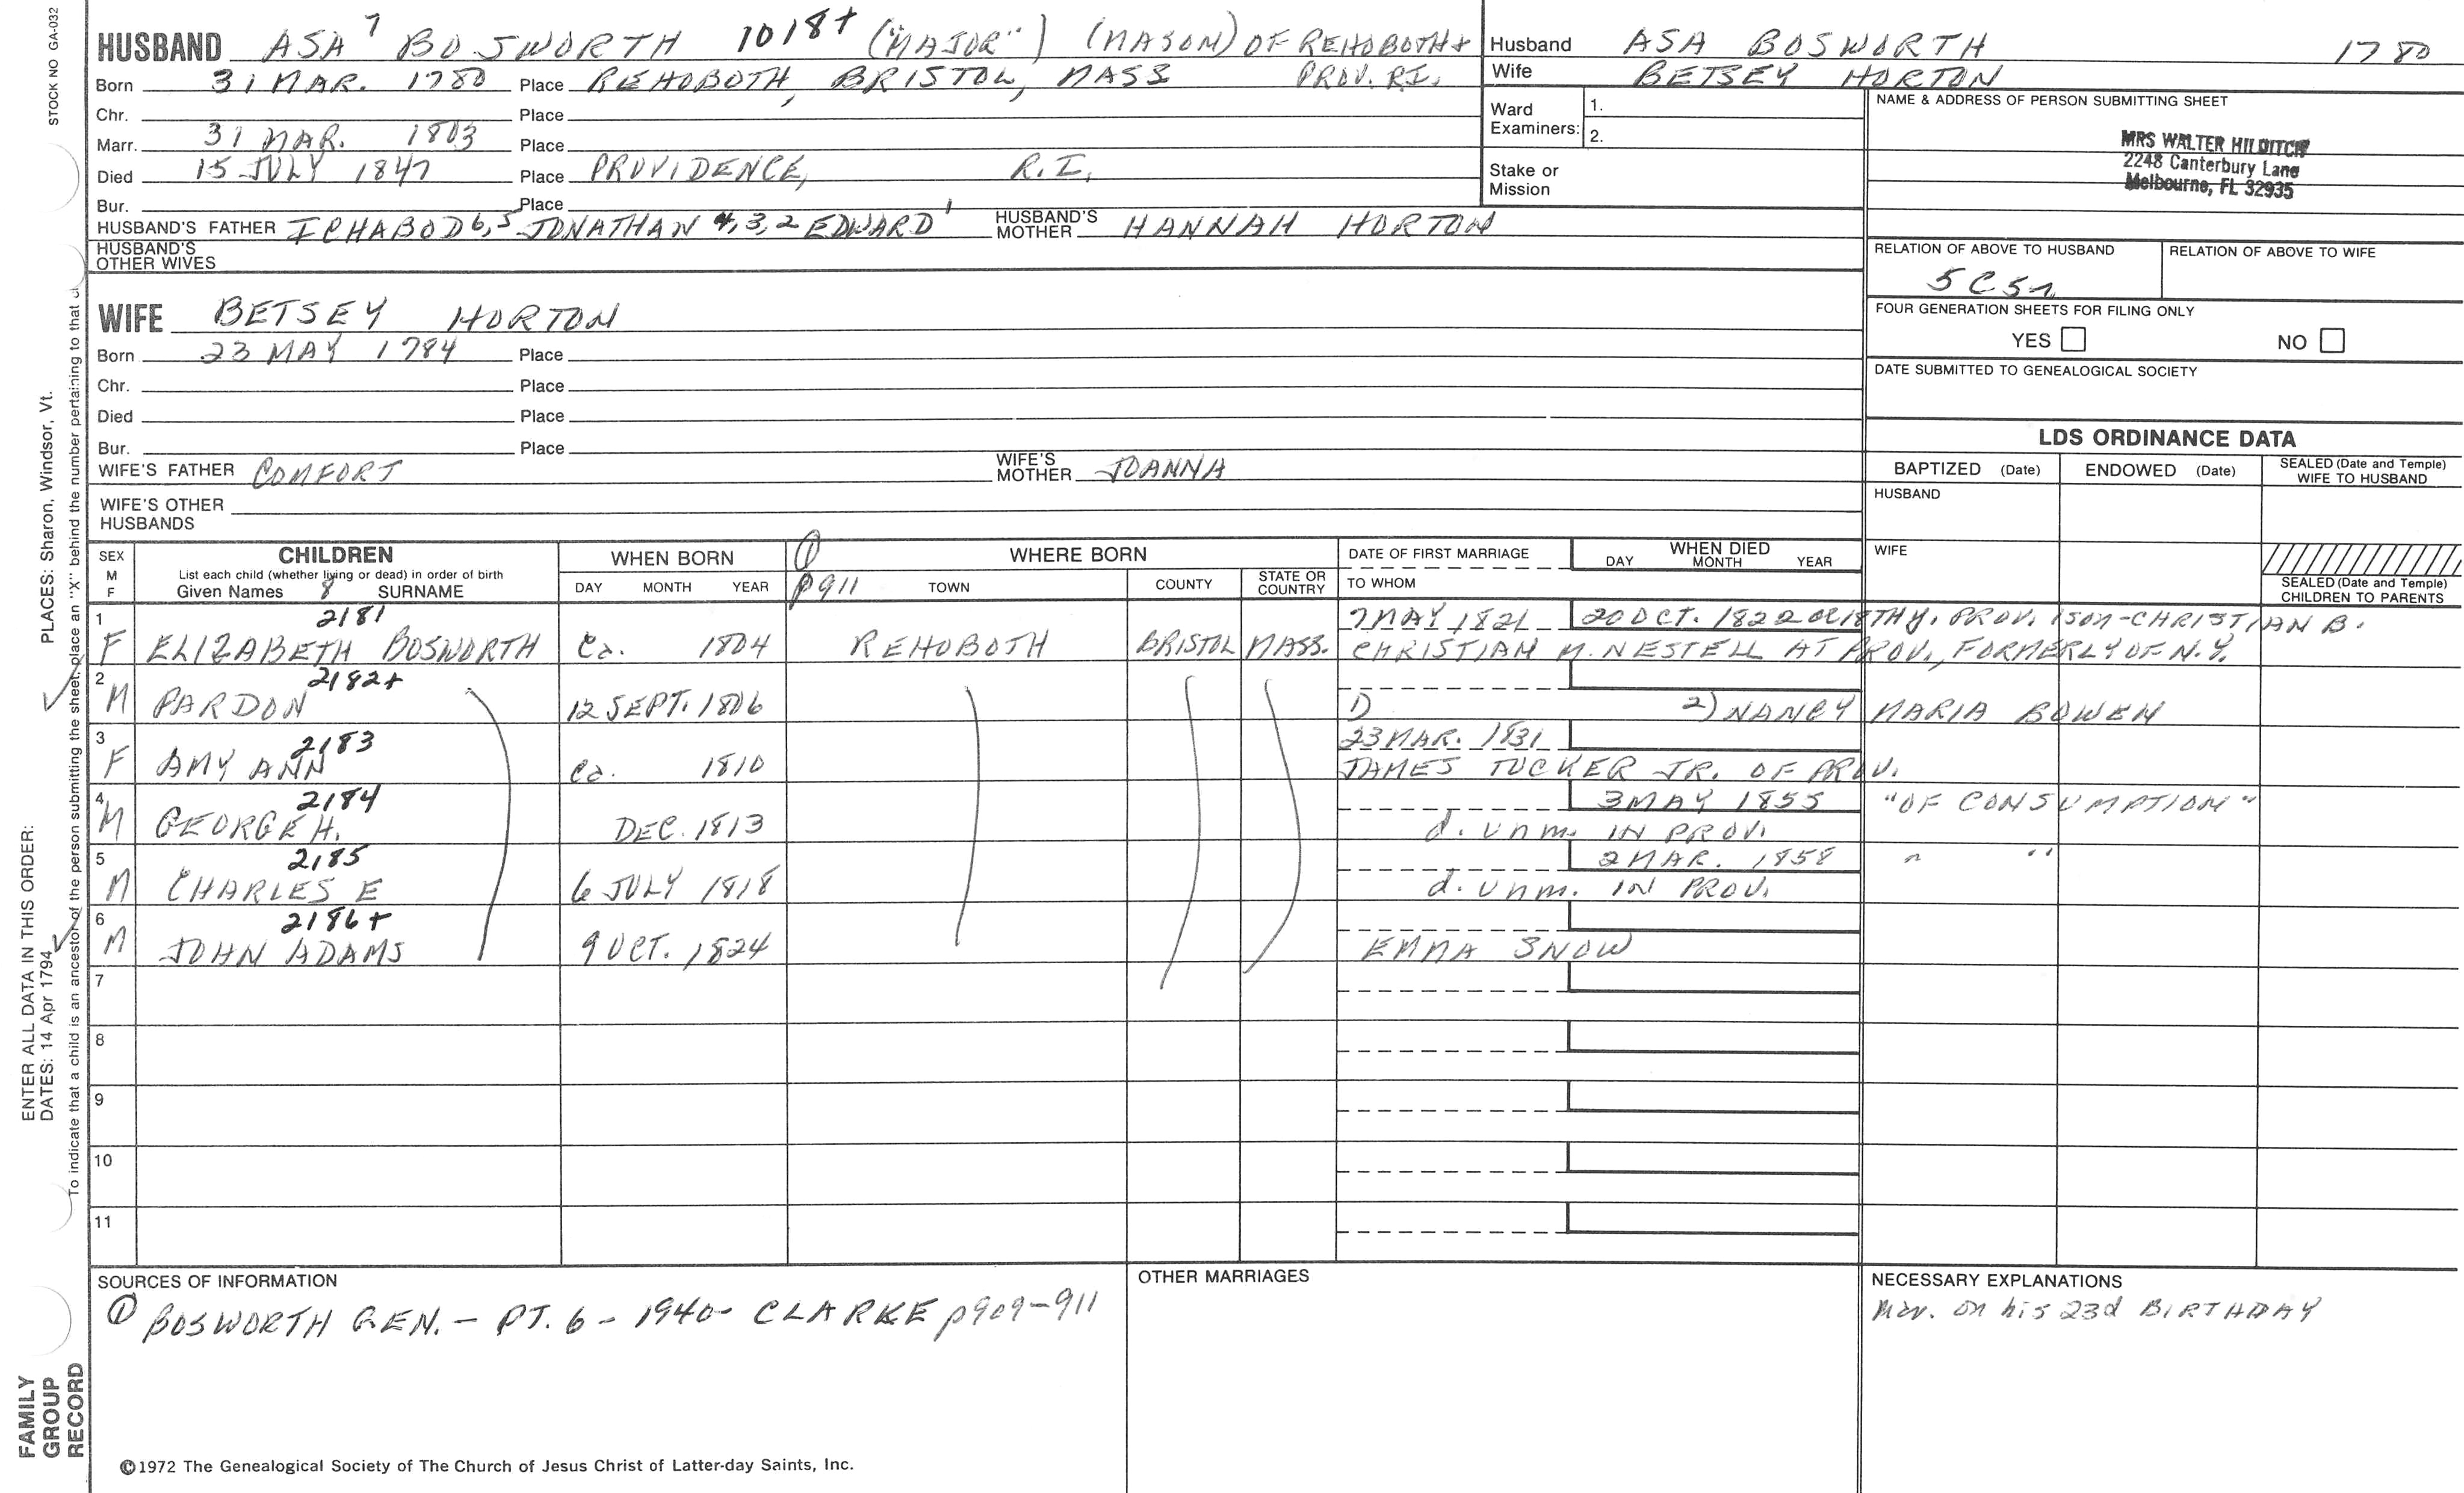 STOCK NO GA-032
HUSBAND ASA 7 BOSWORTH 1018+ ("MAJOR") (MASON) OF REHOBOTH +
PROV. R.I.
Born 31 MAR. 1780 Place REHOBOTH, BRISTOL, MASS
Chr. Place
Marr. 31 MAR. 1803 Place
Died 15 JULY 1847 Place PROVIDENCE, R.I.
Bur. Place
HUSBAND'S FATHER ICHABOD 6,5 JONATHAN 4,3,2 EDWARD 1 HUSBAND'S MOTHER HANNAH HORTON
HUSBAND'S OTHER WIVES
Husband ASA BOSWORTH 1780
Wife BETSEY HORTON
Ward Examiners: 1.
2.
Stake or Mission
NAME & ADDRESS OF PERSON SUBMITTING SHEET
MRS WALTER HILDITCH
2248 Canterbury Lane
Melbourne, FL 32935
RELATION OF ABOVE TO HUSBAND RELATION OF ABOVE TO WIFE
5C5r
FOUR GENERATION SHEETS FOR FILING ONLY
YES NO
DATE SUBMITTED TO GENEALOGICAL SOCIETY
WIFE BETSEY HORTON
Born 23 MAY 1784 Place
Chr. Place
Died Place
Bur. Place
WIFE'S FATHER COMFORT WIFE'S MOTHER JOANNA
WIFE'S OTHER HUSBANDS
LDS ORDINANCE DATA
BAPTIZED (Date) ENDOWED (Date) SEALED (Date and Temple) WIFE TO HUSBAND
HUSBAND
WIFE
SEALED (Date and Temple) CHILDREN TO PARENTS
SEX M F CHILDREN WHEN BORN ① WHERE BORN DATE OF FIRST MARRIAGE WHEN DIED
List each child (whether living or dead) in order of birth
Given Names 8 SURNAME DAY MONTH YEAR p911 TOWN COUNTY STATE OR COUNTRY TO WHOM DAY MONTH YEAR
1 2181 7 MAY 1821 20 OCT. 1822 PROV. 1 SON-CHRISTIAN B.
F ELIZABETH BOSWORTH Ca. 1804 REHOBOTH BRISTOL MASS. CHRISTIAN M. NESTELL AT PROV., FORMERLY OF N.Y.
2 2182+
M PARDON 12 SEPT. 1806 1) 2) NANCY MARIA BOWEN
3 2183 23 MAR. 1831
F AMY ANN Ca. 1810 JAMES TUCKER JR. OF PROV.
4 2184 3 MAY 1855 "OF CONSUMPTION"
M GEORGE H. DEC. 1813 d. unm. IN PROV.
5 2185 2 MAR. 1858 " "
M CHARLES E 6 JULY 1818 d. unm. IN PROV.
6 2186+
M JOHN ADAMS 9 OCT. 1824 EMMA SNOW
7
8
9
10
11
SOURCES OF INFORMATION OTHER MARRIAGES NECESSARY EXPLANATIONS
① BOSWORTH GEN. - PT. 6 - 1940 - CLARKE p909-911
Mar. on his 23d BIRTHDAY
©1972 The Genealogical Society of The Church of Jesus Christ of Latter-day Saints, Inc.
ENTER ALL DATA IN THIS ORDER:
DATES: 14 Apr 1794
PLACES: Sharon, Windsor, Vt.
To indicate that a child is an ancestor of the person submitting the sheet, place an "X" behind the number pertaining to that
FAMILY
GROUP
RECORD